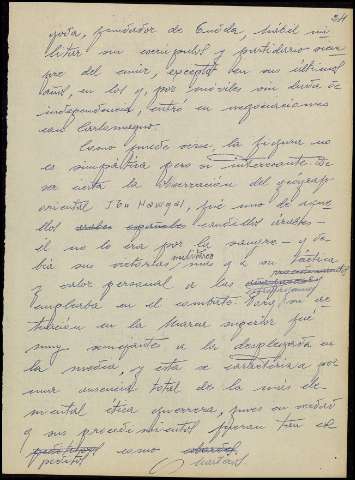 24
yoda, fundador de Tudela, hábil mi-
litar sin escrúpulos y partidario siem-
pre del emir, excepto en sus últimos
años, en los q, por móviles sin duda de
independencia, entró en negociaciones
con Carlomagno.
Como puede verse, la figura no
es simpática pero sí interesante. De
ser cierta la observación del geógrafo
oriental Ibn Hawqal, fué uno de aque-
llos árabes españoles caudillos árabes —
él no lo era por la sangre — y de-
bía sus victorias más q a su táctica
y valor personal a las
procedimientos
empleaba en el combate. Tariq su ac-
tuación en la Marca superior fué
muy semejante a la desplegada en
la media, y esta se caracteriza por
una ausencia total de la más ele-
mental ética guerrera, pues en verdad
q sus procedimientos fueron tan ex-
peditos como